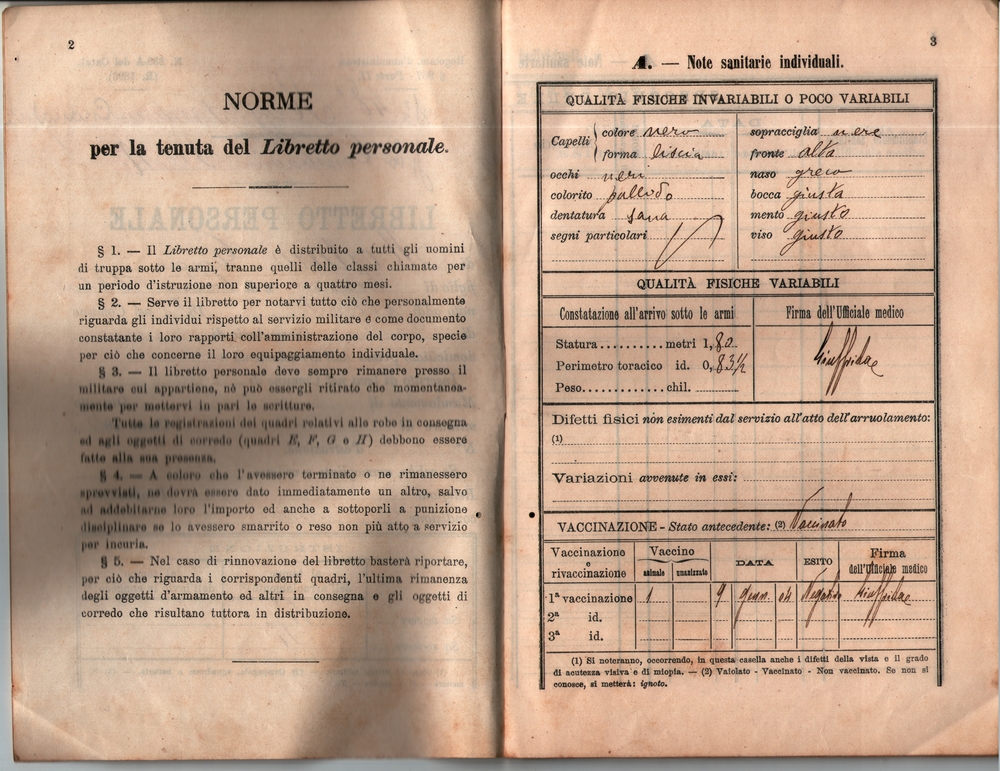 2
NORME
per la tenuta del Libretto personale.
§ 1. — Il Libretto personale è distribuito a tutti gli uomini
di truppa sotto le armi, tranne quelli delle classi chiamate per
un periodo d'istruzione non superiore a quattro mesi.
§ 2. — Serve il libretto per notarvi tutto ciò che personalmente
riguarda gli individui rispetto al servizio militare e come documento
constatante i loro rapporti coll'amministrazione del corpo, specie
per ciò che concerne il loro equipaggiamento individuale.
§ 3. — Il libretto personale deve sempre rimanere presso il
militare cui appartiene, nè può essergli ritirato che momentanea-
mente per mettervi in pari le scritture.
Tutte le registrazioni dei quadri relativi alle robe in consegna
ed agli oggetti di corredo (quadri E, F, G e H) debbono essere
fatte alla sua presenza.
§ 4. — A coloro che l'avessero terminato o ne rimanessero
sprovvisti, ne dovrà essere dato immediatamente un altro, salvo
ad addebitarne loro l'importo ed anche a sottoporli a punizione
disciplinare se lo avessero smarrito o reso non più atto a servizio
per incuria.
§ 5. — Nel caso di rinnovazione del libretto basterà riportare,
per ciò che riguarda i corrispondenti quadri, l'ultima rimanenza
degli oggetti d'armamento ed altri in consegna e gli oggetti di
corredo che risultano tuttora in distribuzione.
3
A. — Note sanitarie individuali.
QUALITÀ FISICHE INVARIABILI O POCO VARIABILI
Capelli colore nero
forma liscia
occhi neri
colorito pallido
dentatura sana
segni particolari
sopracciglia nere
fronte alta
naso greco
bocca giusta
mento giusto
viso giusto
QUALITÀ FISICHE VARIABILI
Constatazione all'arrivo sotto le armi Firma dell'Ufficiale medico
Statura......... metri 1,80
Perimetro toracico id. 0,83½
Peso............ chil.
Giuffridae
Difetti fisici non esimenti dal servizio all'atto dell'arruolamento:
(1)
Variazioni avvenute in essi:
VACCINAZIONE - Stato antecedente: (2) Vaccinato
Vaccinazione e rivaccinazione Vaccino animale umanizzato DATA ESITO Firma dell'Ufficiale medico
1ª vaccinazione 1 9 genn. 04 Negativo Giuffridae
2ª id.
3ª id.
(1) Si noteranno, occorrendo, in questa casella anche i difetti della vista e il grado
di acutezza visiva e di miopia. — (2) Vaiolato - Vaccinato - Non vaccinato. Se non si
conosce, si metterà: ignoto.